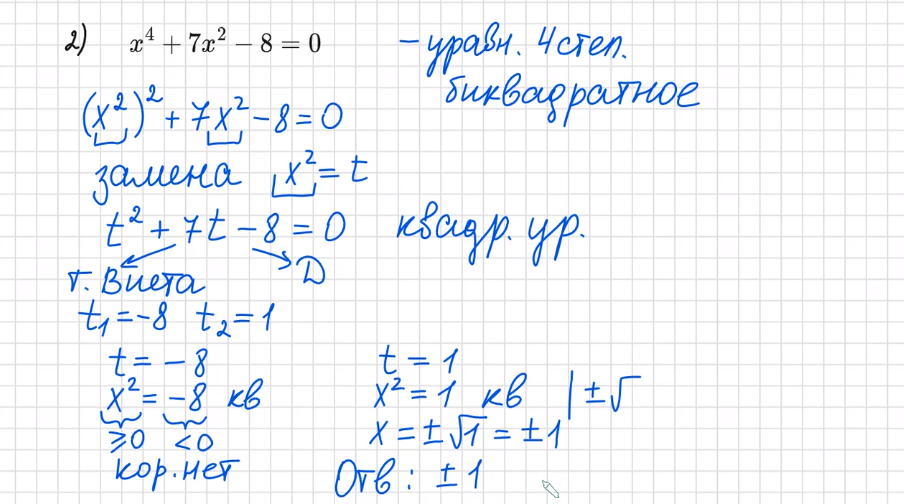 2) x⁴ + 7x² − 8 = 0 − уравн. 4 степ.
биквадратное
(x²)² + 7x² − 8 = 0
замена x² = t
t² + 7t − 8 = 0 квадр. ур.
т. Виета D
t₁ = −8 t₂ = 1
t = −8 t = 1
x² = −8 кв x² = 1 кв | ±√
≥0 <0 x = ±√1 = ±1
кор. нет
Отв: ±1